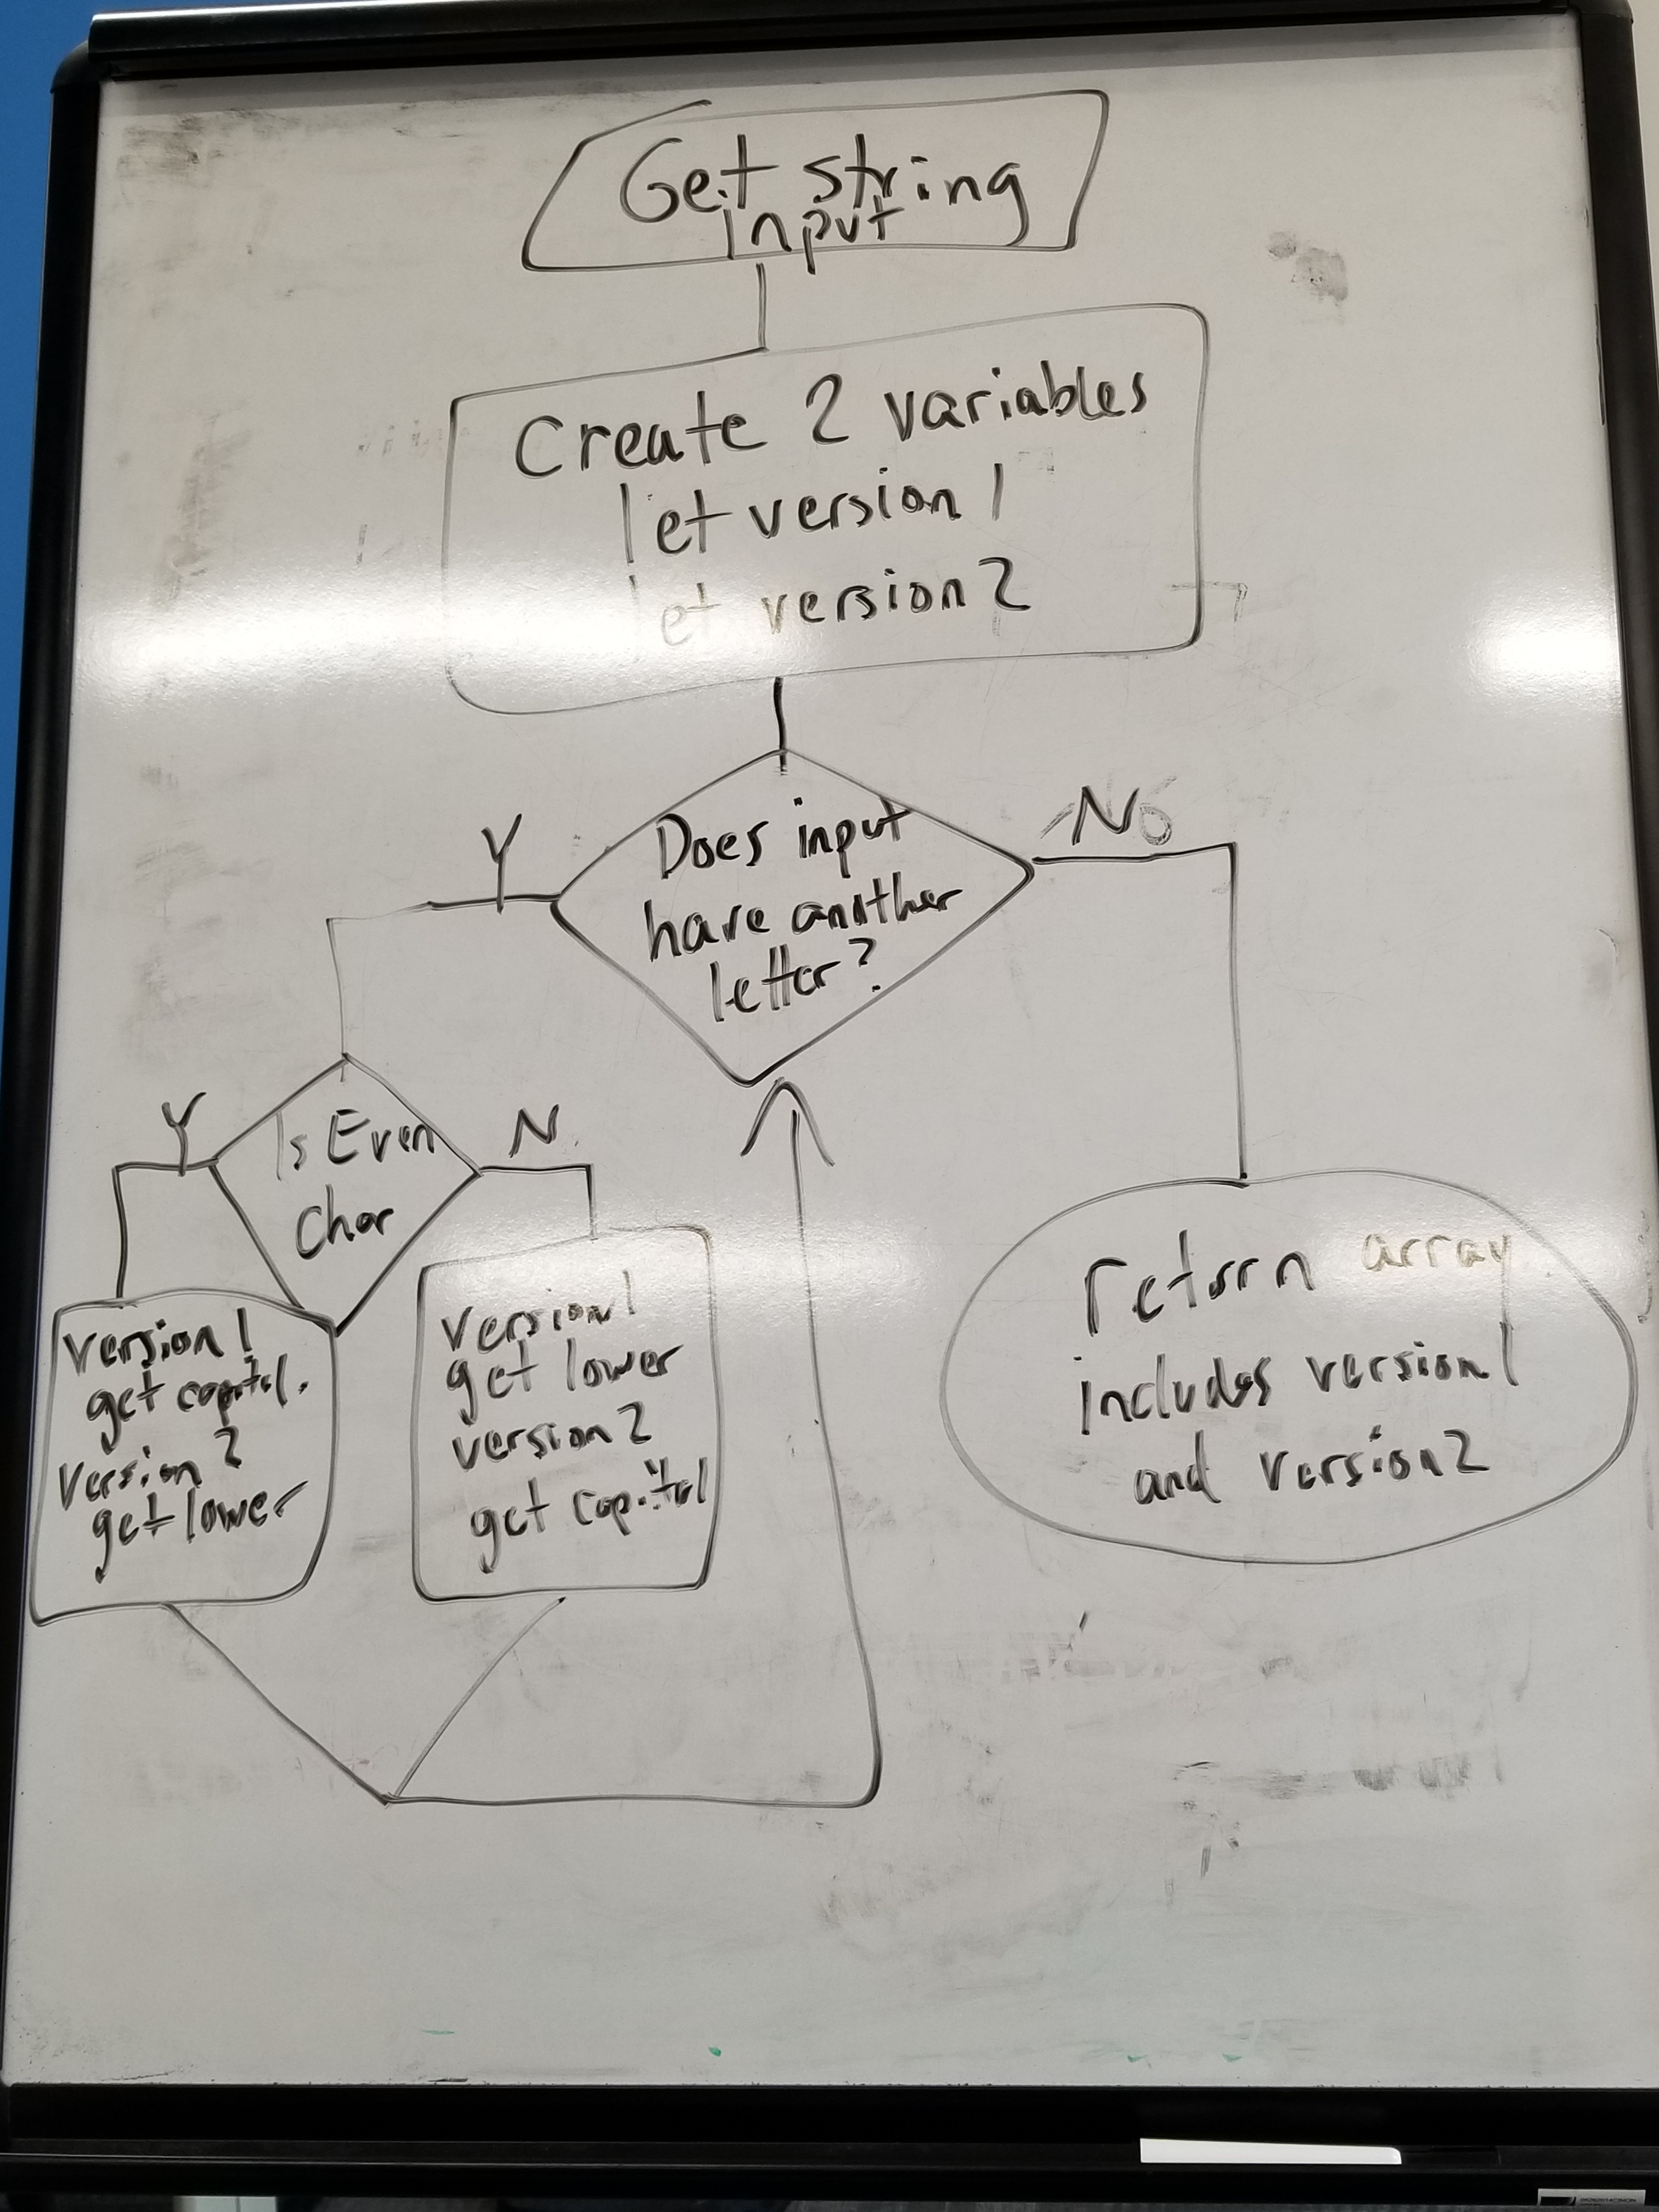 Get string
input
Create 2 variables
let version 1
let version 2
Does input
have another
letter?
Y
No
Is Even
Char
Y
N
version 1
get capital.
version 2
get lower
version 1
get lower
version 2
get capital
return array
includes version 1
and version 2